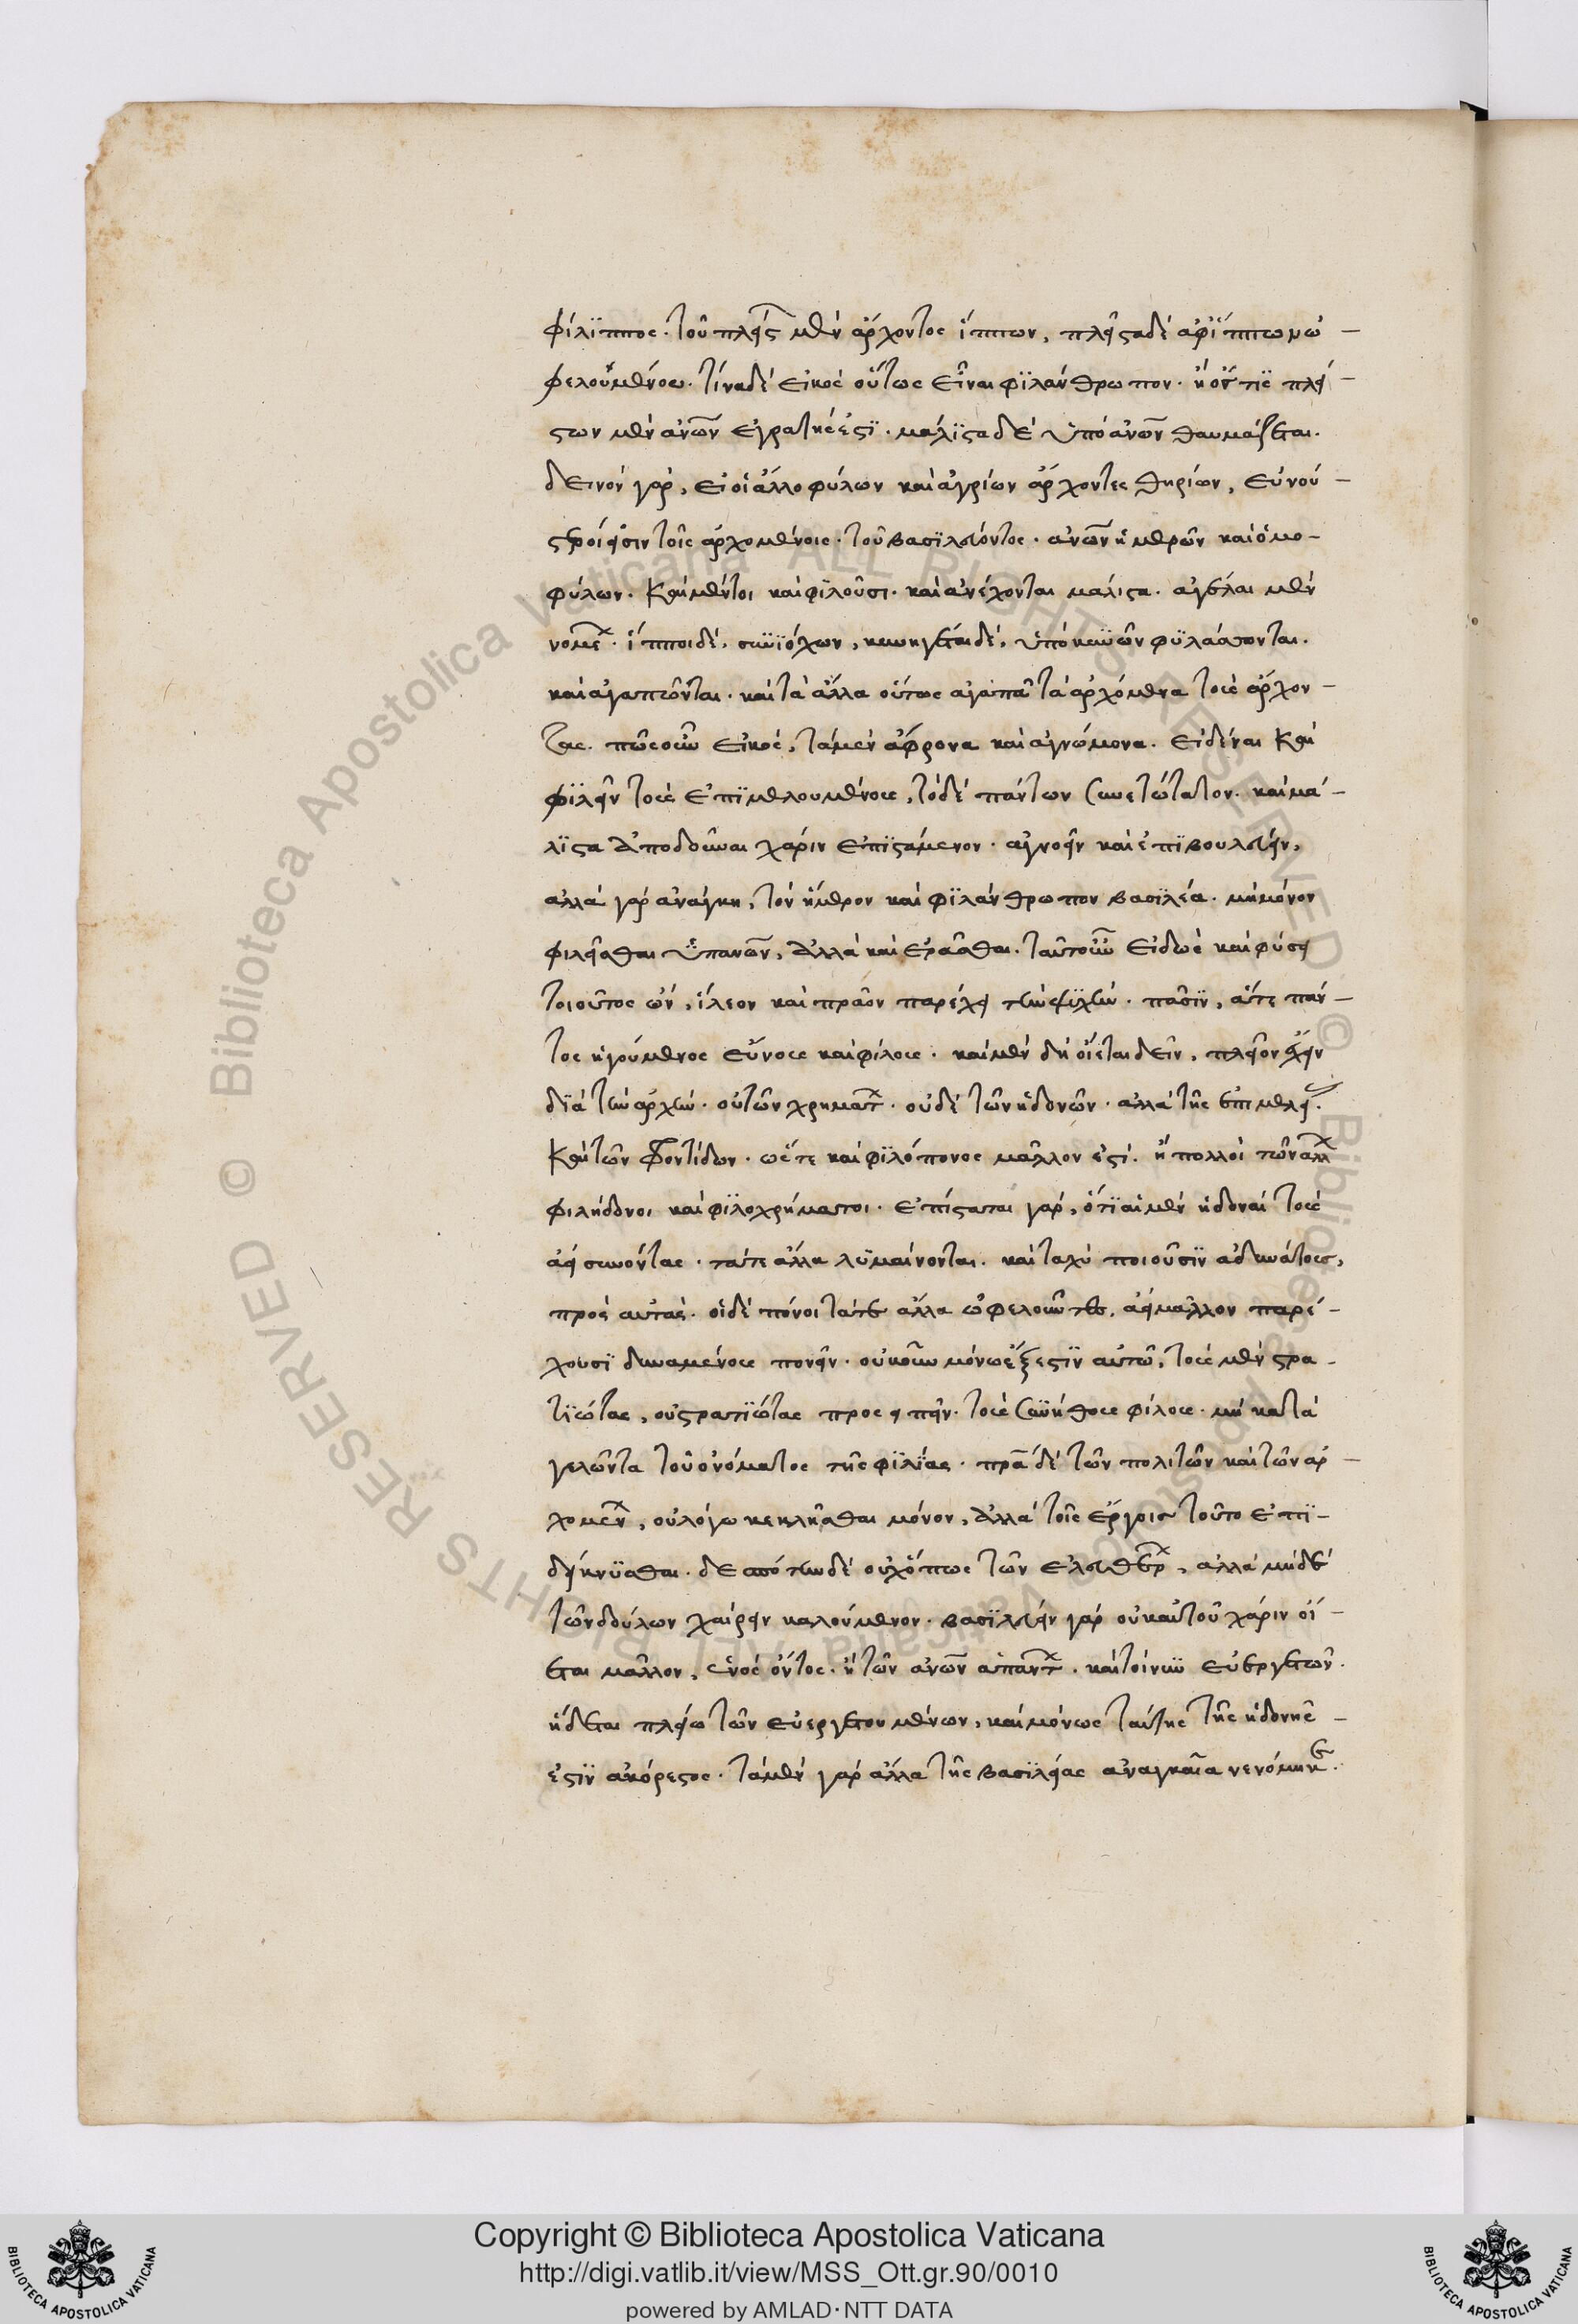 φίλϊππος. τοῦ πλείστ μὲν ἄρχοντος ἵππων, πλεῖστα δὲ ἀφ' ἵππων ὠ-
φελουμένου. τίνα δὲ εἰκὸς οὕτως εἶναι φϊλάνθρωπον. ἢ ὅν τϊς πλεί-
στων μὲν ἀνων ἐγκρατής ἐστϊ. μάλϊστα δὲ ὑπὸ ἀνων θαυμάζεται.
δεινὸν γὰρ, εἰ οἱ ἀλλοφύλων καὶ ἀγρίων ἄρχοντες θηρίων, εὐνού-
στεροί εἰσιν τοῖς ἀρχομένοις. τοῦ βασϊλεύοντος. ἀνων ἡμέρων καὶ ὁμο-
φύλων. καὶ μέντοι καὶ φϊλοῦσι. καὶ ἀνέχονται μάλιστα. ἀγέλαι μὲν
νομε. ἵπποι δὲ, ἡνϊόχων, κυνηγέται δὲ, ὑπὸ κυνῶν φϋλάττονται.
καὶ ἀγαπῶνται. καὶ τὰ ἄλλα οὕτως ἀγαπᾶ τὰ ἀρχόμενα τοὺς ἄρχον-
τας. πῶς οὖν εἰκὸς, τὰ μὲν ἄφρονα καὶ ἀγνώμονα. εἰδέναι καὶ
φϊλεῖν τοὺς ἐπϊμελουμένους, τὸ δὲ πάντων συνετώτατον. καὶ μά-
λϊστα ἀποδοῦναι χάριν ἐπϊστάμενον. ἀγνοεῖν καὶ ἐπϊβουλεύειν,
ἀλλὰ γὰρ ἀνάγκη, τὸν ἥμερον καὶ φϊλάνθρωπον βασϊλέα. μὴ μόνον
φιλεῖσθαι ὑπ' ανων, ἀλλὰ καὶ ἐρᾶσθαι. ταῦτ' οὖν εἰδὼς καὶ φύσει
τοιοῦτος ὢν, ἵλεον καὶ πρᾶον παρέχει τὴν ψϋχὴν. πᾶσϊν, ἅτε πάν-
τος ἡγούμενος εὔνους καὶ φίλους. καὶ μὲν δὴ οἴεται δεῖν, πλεῖον ἔχειν
δϊὰ τὴν ἀρχὴν. οὐ τῶν χρηματ. οὐδὲ τῶν ἡδονῶν. ἀλλὰ τῆς ἐπιμελεί.
καὶ τῶν φροντίδων. ὥστε καὶ φϊλόπονος μᾶλλον ἐστί. ἢ πολλοὶ τῶν αλλ
φιλήδονοι καὶ φϊλοχρήματοι. ἐπίσταται γὰρ, ὅτϊ αἱ μὲν ἡδοναὶ τοὺς
ἀεὶ συνόντας. τά τε ἄλλα λϋμαίνονται. καὶ ταχὺ ποιοῦσϊν ἀδυνάτους,
πρὸς αὐτάς. οἱ δὲ πόνοι τά τε ἄλλα ὠφελοῦντες, ἀεὶ μᾶλλον παρέ-
χουσϊ δυναμένους πονεῖν. οὐκοῦν μόνως ἔξεστϊν αὐτῶ, τοὺς μὲν στρα-
τϊώτας, οὐ στρατϊώτας προσειπεῖν. τοὺς συνήθους φίλους. μὴ κατα
γελῶντα τοῦ ὀνόματος τῆς φϊλίας. πρα δὲ τῶν πολιτῶν καὶ τῶν ἀρ-
χομεν, οὐ λόγω κεκλῆσθαι μόνον, ἀλλὰ τοῖς ἔργοις τοῦτο ἐπϊ-
δείκνυσθαι. δεσπότην δὲ οὐχ ὅπως τῶν ἐλευθερ, ἀλλὰ μηδὲ
τῶν δούλων χαίρειν καλούμενον. βασϊλεύειν γὰρ οὐκ αὐτοῦ χάριν οἴ-
εται μᾶλλον, ἑνὸς ὄντος. ἢ τῶν ανων ἁπαντ. καὶ τοίνυν εὐεργετῶν.
ἥδεται πλείω τῶν εὐεργετουμένων, καὶ μόνως ταύτης τῆς ἡδονῆς-
ἐστϊν ἀκόρεστος. τὰ μὲν γὰρ ἄλλα τῆς βασϊλείας ἀναγκαῖα νενόμικε.
Copyright © Biblioteca Apostolica Vaticana
http://digi.vatlib.it/view/MSS_Ott.gr.90/0010
powered by AMLAD·NTT DATA